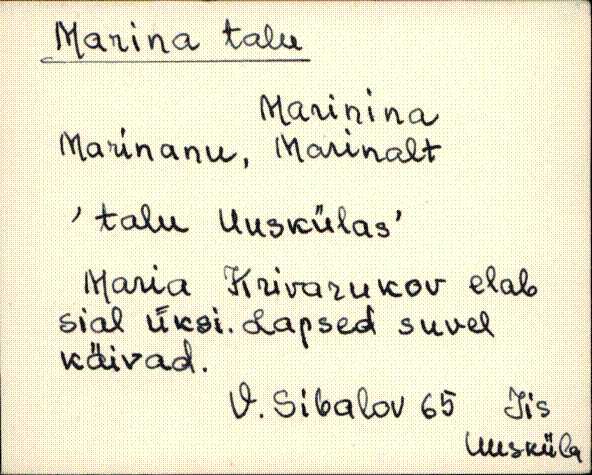 Marina talu
Marinina
Marinanu, Marinalt
'talu Uuskülas'
Maria Krivarukov elab
sial üksi. Lapsed suvel
käivad.
V. Sibalov 65 Iis
Uusküla